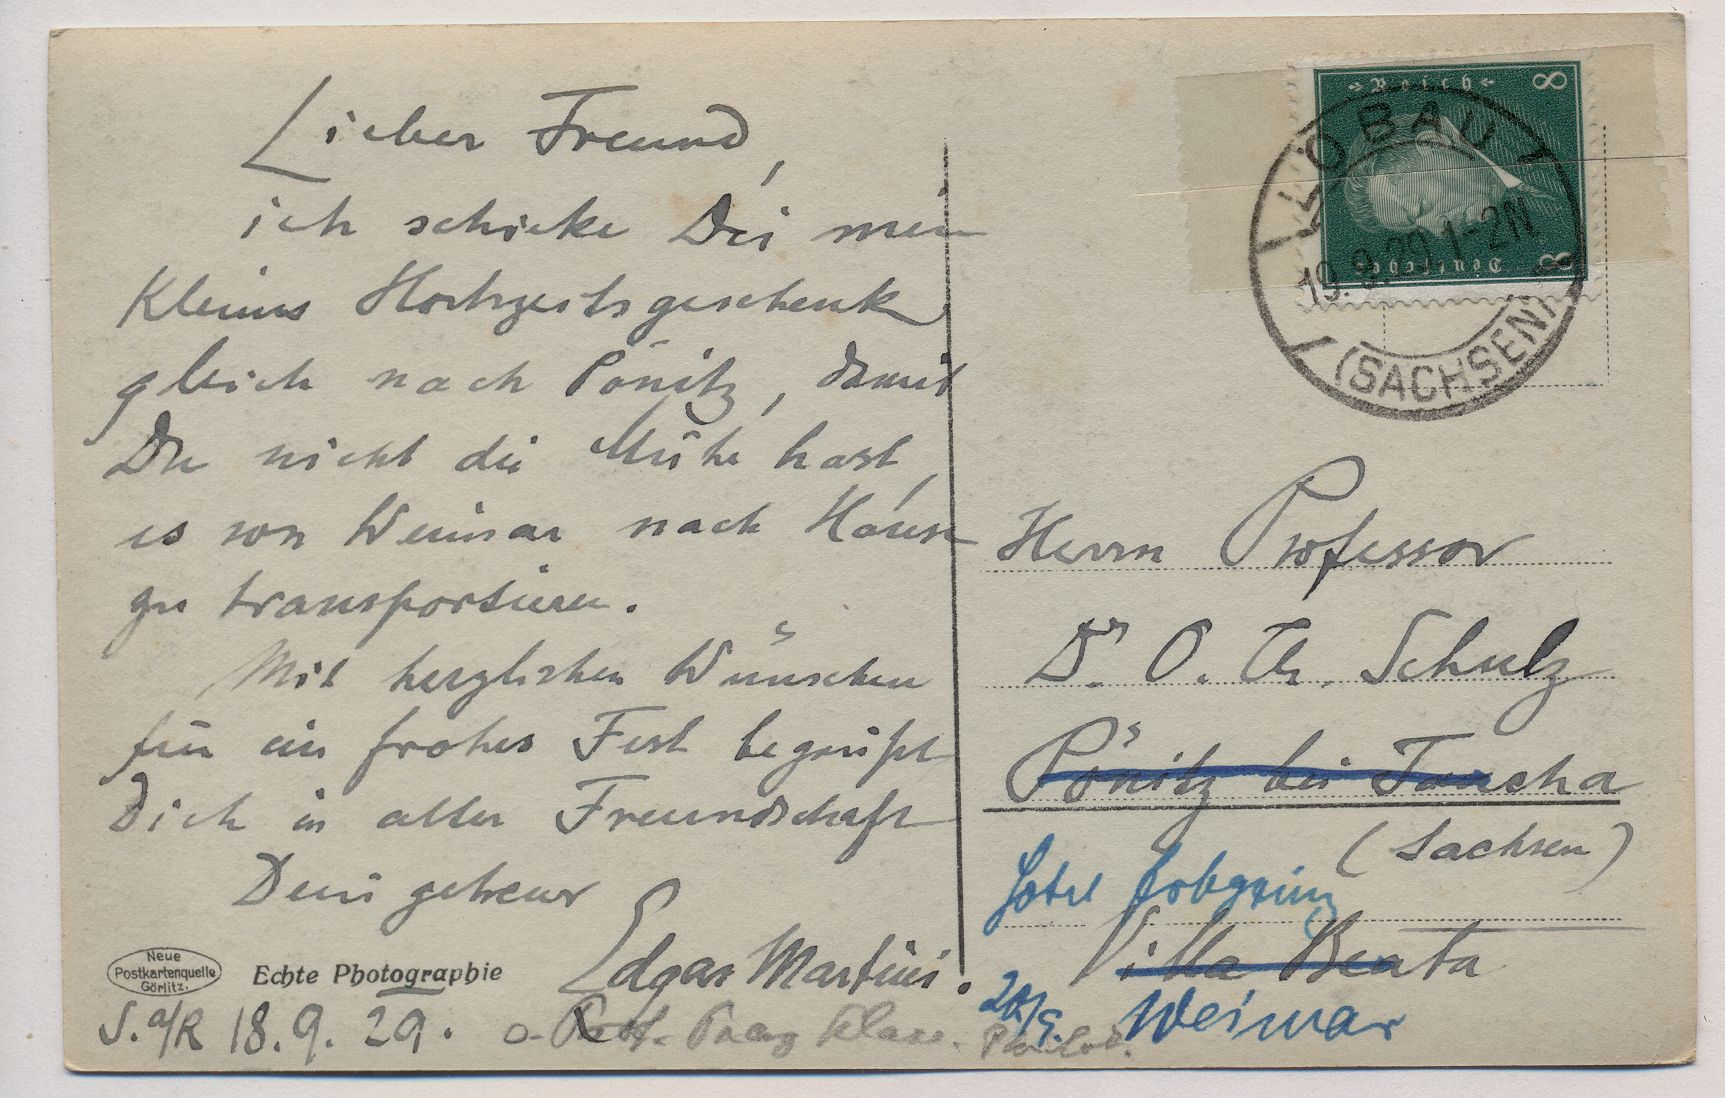 Lieber Freund,
ich schicke Dir mein
kleines Hochzeitsgeschenk
gleich nach Pönitz, damit
Du nicht die Mühe hast,
es von Weimar nach Hause
zu transportieren.
Mit herzlichen Wünschen
für ein frohes Fest begrüßt
Dich in alter Freundschaft
Dein getreuer
Edgar Martini.
Neue
Postkartenquelle
Görlitz.
Echte Photographie
S. a/R 18. 9. 29.
Reich
8
Deutsches
8
LÖBAU
19.9.29.1-2N
(SACHSEN)
Herrn Professor
Dr. O. Th. Schulz
Pönitz bei Taucha
(Sachsen)
Hotel Erbprinz
Villa Beata
Weimar